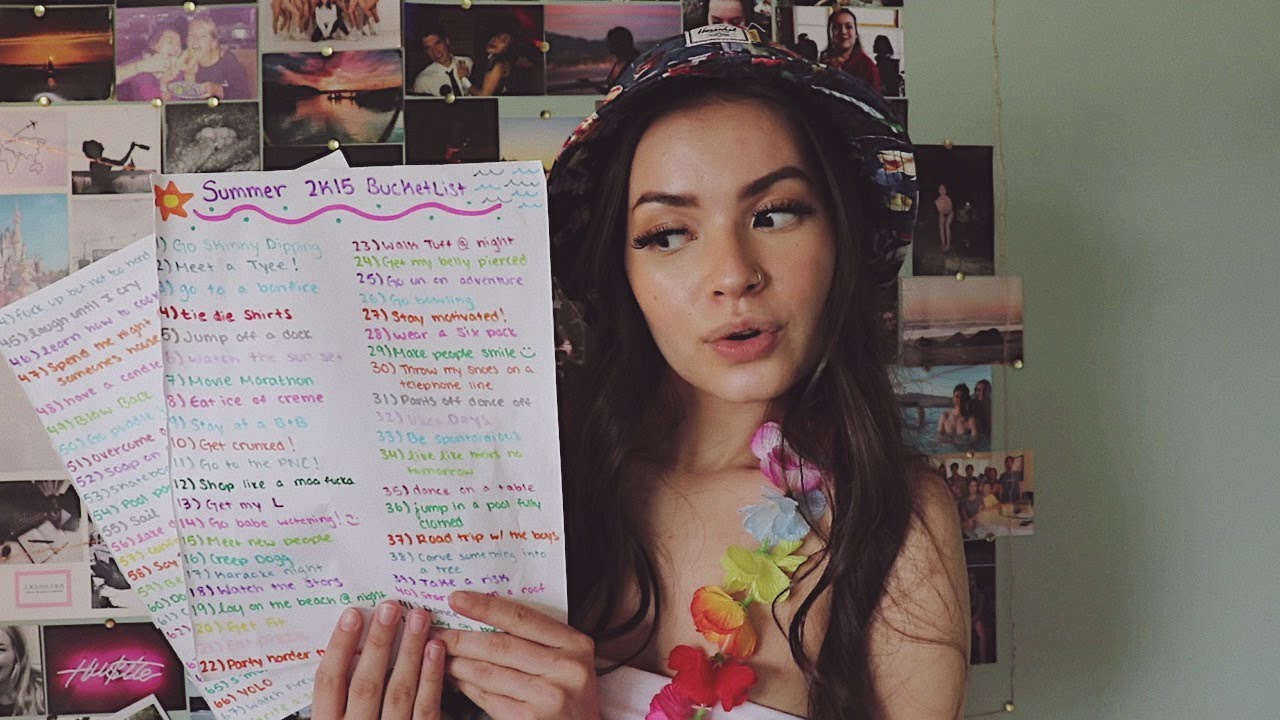 Summer 2K15 BucketList
1) Go Skinny Dipping
2) Meet a Tyee!
3) go to a bonfire
4) tie die shirts
5) Jump off a dock
6) Watch the sun set
7) Movie Marathon
8) Eat ice of creme
9) Stay at a B+B
10) Get crunced!
11) Go to the PNE!
12) Shop like a maa fucka
13) Get my L
14) Go babe watching!
15) Meet new people
16) Creep Dogg
17) Karaoke night
18) Watch the stars
19) Lay on the beach @ night
20) Get fit
22) Party harder
23) Walk Tuff @ night
24) Get my belly pierced
25) Go on an adventure
26) Go bowling
27) Stay motivated!
28) wear a six pack
29) Make people smile
30) Throw my shoes on a
telephone line
31) Pants off dance off
32) Days
33) Be spontanious
34) live like theirs no
tomorrow
35) dance on a table
36) jump in a pool fully
clothed
37) Road trip w/ the boys
38) Carve something into
a tree
39) Take a risk
40) on a roof
Dance
Lay on
Fuck up but not too hard
45) laugh until I cry
46) Learn how to
47) Spend the night
someones house
48) have a candle
49) Blow Back
50) Go paddle
51) overcome a
52) Soap on
53) Skateboard
54) Pool
55) Sail
56)
57)
58) Say
59) Be
60)
61)
62)
65)
66) YOLO
67) Watch
Hustle
Herschel